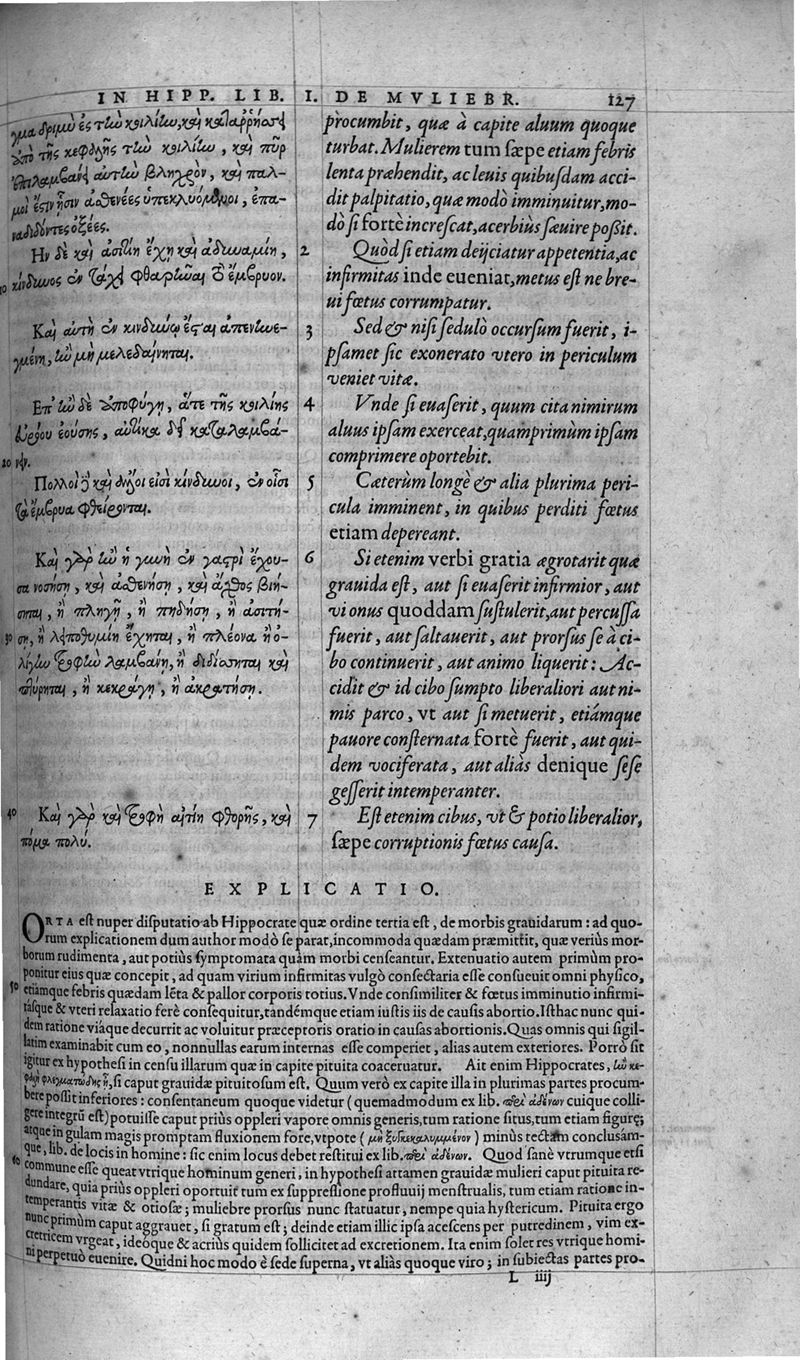 IN HIPP. LIB. I. DE MVLIEBR. 127
γμα δριμὺ ἐς τὴν κοιλίην, καὶ καταῤῥήσσῃ
ἀπὸ τῆς κεφαλῆς τὴν κοιλίην, καὶ πῦρ
ἐπιλαμβάνῃ αὐτὴν βληχρὸν, καὶ παλ-
μοὶ
ναδιδόντες ὀξέες.
Ην δὲ καὶ ἀσιτίη ἔχῃ καὶ ἀδυναμίη,
10 κίνδυνος ἐν τάχει φθαρῆναι τὸ ἔμβρυον.
Καὶ αὐτὴ ἐν κινδύνῳ ἔσται
ἢν μὴ μελεδαίνηται.
Επ' ἢν δὲ ἀποφύγῃ, ἅτε τῆς κοιλίης
ὑγροῦ ἐούσης, αὐτίκα δεῖ καταλαμβά-
20 νειν.
Πολλοὶ δὲ καὶ ἄλλοι εἰσὶ κίνδυνοι, ἐν οἷσι
τὰ ἔμβρυα φθείρονται.
Καὶ γὰρ ἢν ἡ γυνὴ ἐν γαστρὶ ἔχου-
σα νοσήσῃ, καὶ ἀσθενήσῃ, καὶ ἄχθος βίῃ
ἢ πληγῇ, ἢ πηδήσῃ, ἢ ἀσιτή-
30 σῃ, ἢ λειποθυμίῃ ἔχηται, ἢ πλέονα ἢ ὀ-
λίγην τροφὴν λαμβάνῃ, ἢ δειδίσσηται καὶ
πτύρηται, ἢ κεκράγῃ, ἢ ἀκρατήσῃ.
40 Καὶ γὰρ καὶ τροφὴ αἰτίη φθορῆς, καὶ
πόμα πολύ.
procumbit, quæ à capite aluum quoque
turbat. Mulierem tum sæpe etiam febris
lenta præhendit, ac leuis quibusdam acci-
dit palpitatio, quæ modò imminuitur, mo-
dò si fortè increscat, acerbiùs sæuire possit.
2 Quòd si etiam deijciatur appetentia, ac
infirmitas inde eueniat, metus est ne bre-
ui fœtus corrumpatur.
3 Sed & nisi sedulò occursum fuerit, i-
psamet sic exonerato vtero in periculum
veniet vitæ.
4 Vnde si euaserit, quum cita nimirum
aluus ipsam exerceat, quamprimùm ipsam
comprimere oportebit.
5 Cæterùm longè & alia plurima peri-
cula imminent, in quibus perditi fœtus
etiam depereant.
6 Si etenim verbi gratia ægrotarit quæ
grauida est, aut si euaserit infirmior, aut
vi onus quoddam sustulerit, aut percussa
fuerit, aut saltauerit, aut prorsus se à ci-
bo continuerit, aut animo liquerit: Ac-
cidit & id cibo sumpto liberaliori aut ni-
mis parco, vt aut si metuerit, etiámque
pauore consternata fortè fuerit, aut qui-
dem vociferata, aut aliàs denique sese
gesserit intemperanter.
7 Est etenim cibus, vt & potio liberalior,
sæpe corruptionis fœtus causa.
EXPLICATIO.
ORTA est nuper disputatio ab Hippocrate quæ ordine tertia est, de morbis grauidarum: ad quo-
rum explicationem dum author modò se parat, incommoda quædam præmittit, quæ veriùs mor-
borum rudimenta, aut potiùs symptomata quàm morbi censeantur. Extenuatio autem primùm pro-
ponitur eius quæ concepit, ad quam virium infirmitas vulgò consectaria esse consueuit omni physico,
50 etiámque febris quædam lēta & pallor corporis totius. Vnde consimiliter & fœtus imminutio infirmi-
tásque & vteri relaxatio ferè consequitur, tandémque etiam iustis iis de causis abortio. Isthac nunc qui-
dem ratione viáque decurrit ac voluitur præceptoris oratio in causas abortionis. Quas omnis qui sigil-
latim examinabit cum eo, nonnullas earum internas esse comperiet, alias autem exteriores. Porrò sit
igitur ex hypothesi in censu illarum quæ in capite pituita coaceruatur. Ait enim Hippocrates, ἢν κε-
φαλὴ φλεγματώδης ᾖ, si caput grauidæ pituitosum est. Quum verò ex capite illa in plurimas partes procum-
bere possit inferiores: consentaneum quoque videtur (quemadmodum ex lib. περὶ ἀδένων cuique colli-
gere integrū est) potuisse caput priùs oppleri vapore omnis generis, tum ratione situs, tum etiam figuræ;
atque in gulam magis promptam fluxionem fore, vtpote (μὴ ξυγκεκαλυμμένον) minùs tectam conclusám-
que, lib. de locis in homine: sic enim locus debet restitui ex lib. περὶ ἀδένων. Quod sanè vtrumque etsi
60 commune esse queat vtrique hominum generi, in hypothesi attamen grauidæ mulieri caput pituita re-
dundare, quia priùs oppleri oportuit tum ex suppressione profluuij menstrualis, tum etiam ratione in-
temperantis vitæ & otiosæ; muliebre prorsus nunc statuatur, nempe quia hystericum. Pituita ergo
nunc primùm caput aggrauet, si gratum est; deinde etiam illic ipsa acescens per putredinem, vim ex-
cretricem vrgeat, ideóque & acriùs quidem sollicitet ad excretionem. Ita enim solet res vtrique homi-
ni perpetuò euenire. Quidni hoc modo è sede superna, vt aliàs quoque viro; in subiectas partes pro-
L iiij